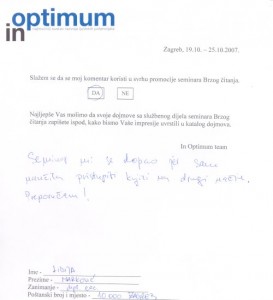 optimum
in
Zagreb, 19.10. – 25.10.2007.
Slažem se da se moj komentar koristi u svrhu promocije seminara Brzog čitanja.
DA NE
Najljepše Vas molimo da svoje dojmove sa službenog dijela seminara Brzog
čitanja zapišete ispod, kako bismo Vaše impresije uvrstili u katalog dojmova.
In Optimum team
Seminar mi se dopao jer sam
naučila pristupiti knjizi na drugi način.
Preporučam!
Ime -
Prezime - MARKOVIĆ
Zanimanje -
Poštanski broj i mjesto - 10 000 ZAGREB